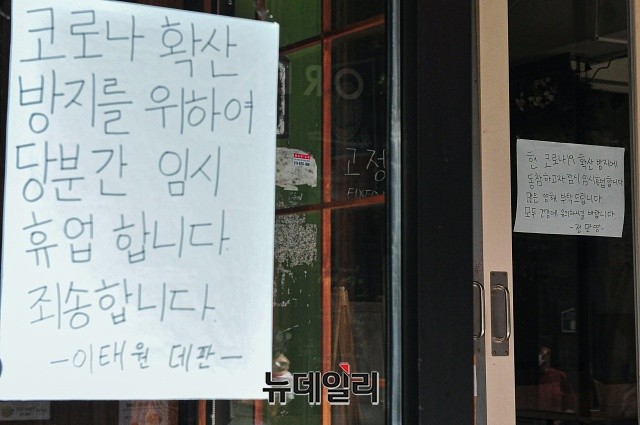 코로나 확산
방지를 위하여
당분간 임시
휴업 합니다.
죄송합니다.
-이태원 데판-
OR
고정
FIXED
현 코로나19 확산 방지에
동참하고자 잠시 임시휴업합니다
많은 양해 부탁드립니다
모두 건강에 유의하시길 바랍니다
뉴데일리